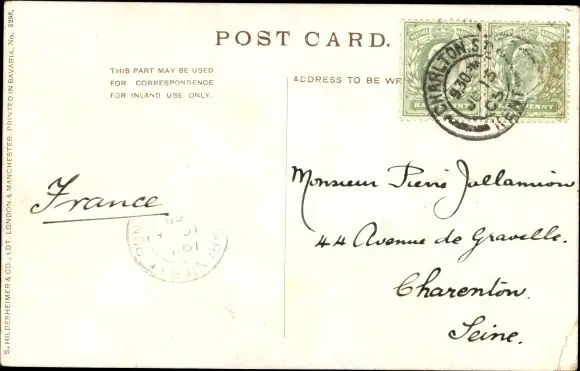 POST CARD.
THIS PART MAY BE USED
FOR CORRESPONDENCE
FOR INLAND USE ONLY.
ADDRESS TO BE
HALFPENNY
HALFPENNY
CHARLTON
KENT
France
Monsieur Pierre Jallamion
44 Avenue de Gravelle.
Charenton.
Seine.
S. HILDESHEIMER & CO., LDT. LONDON & MANCHESTER. PRINTED IN BAVARIA. No. 5298.